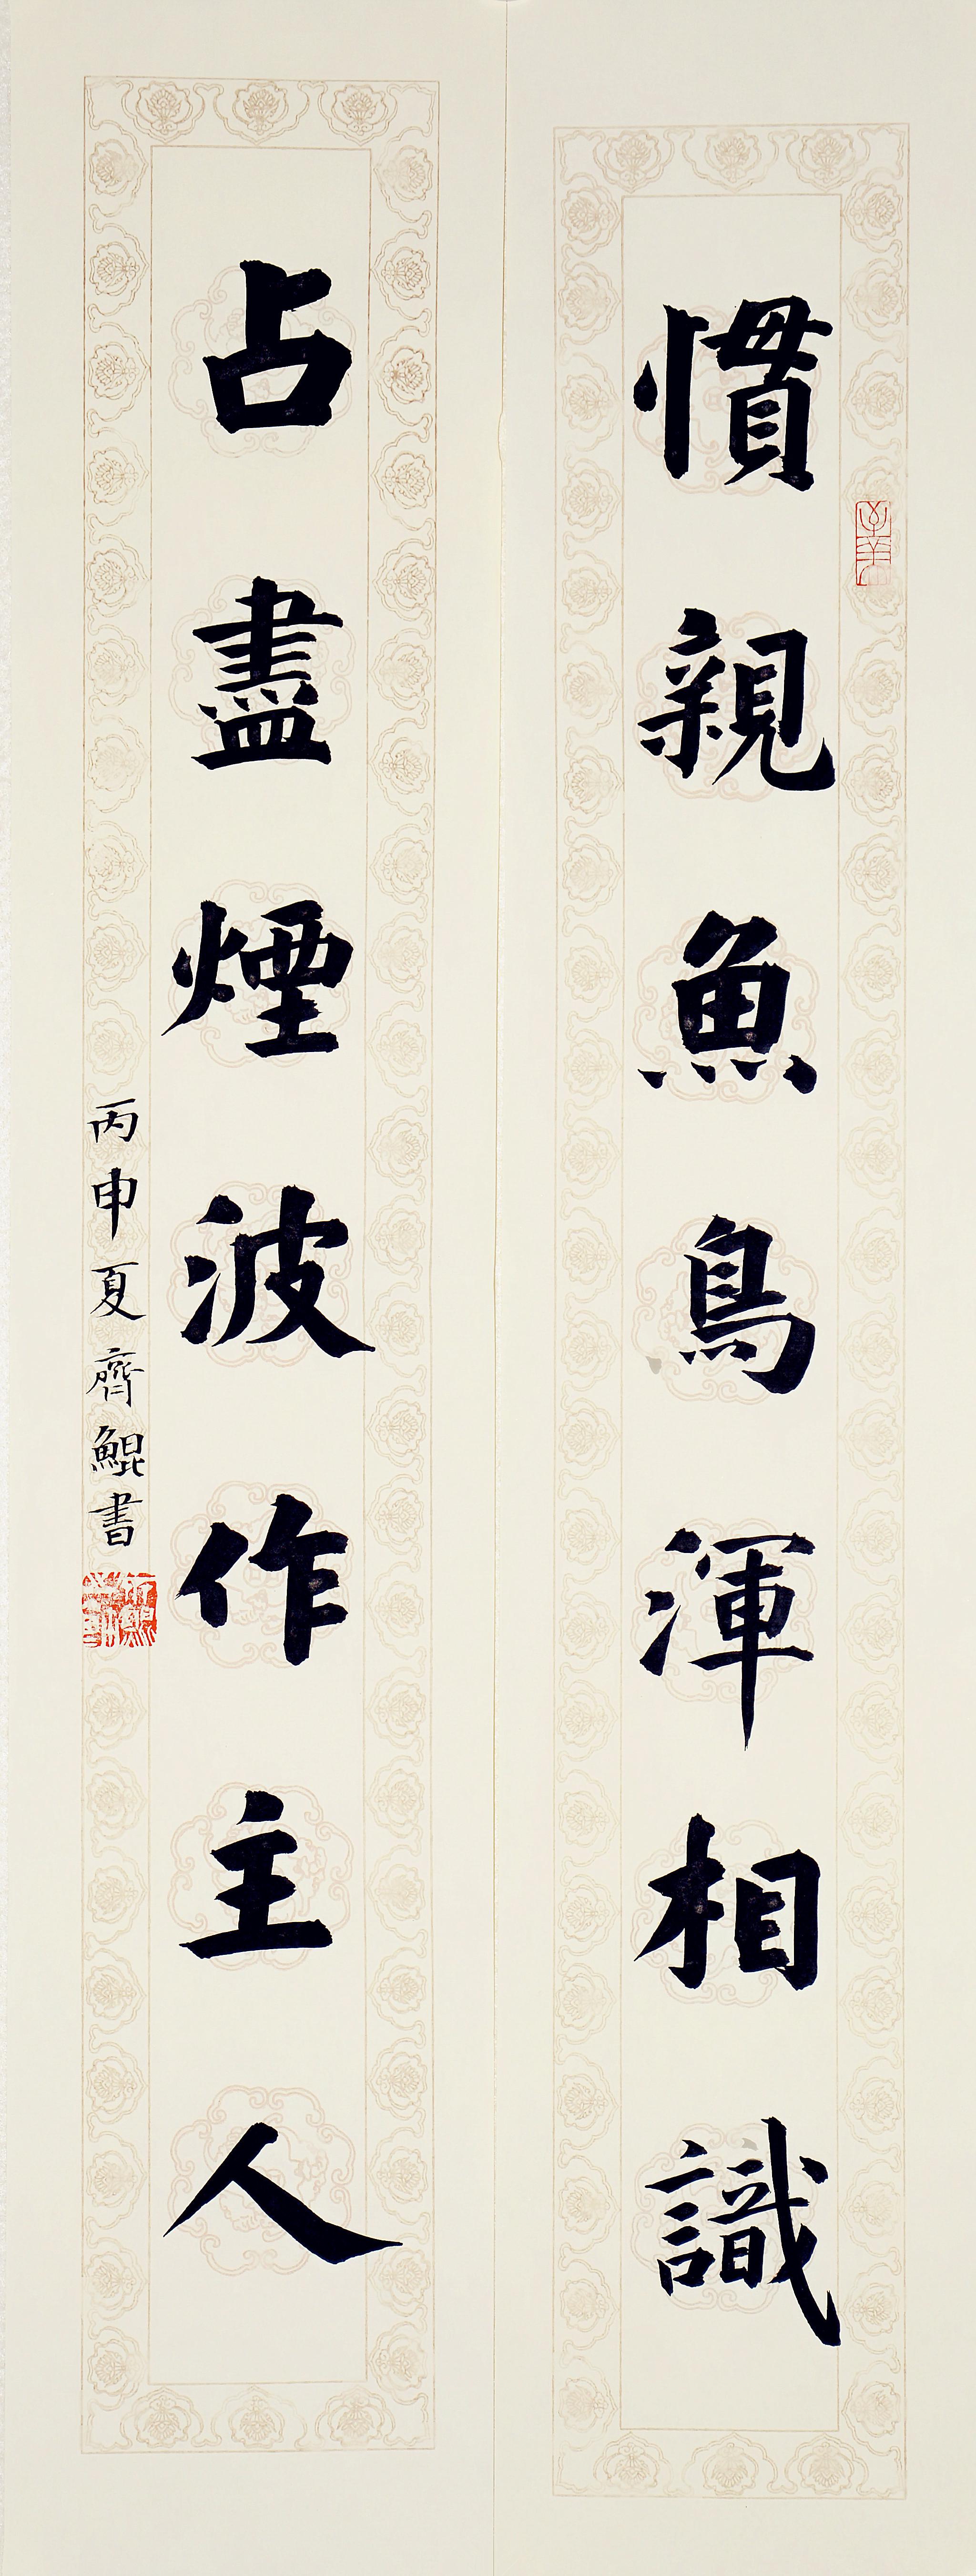 慣親魚鳥渾相識
占盡煙波作主人
丙申夏齊鯤書